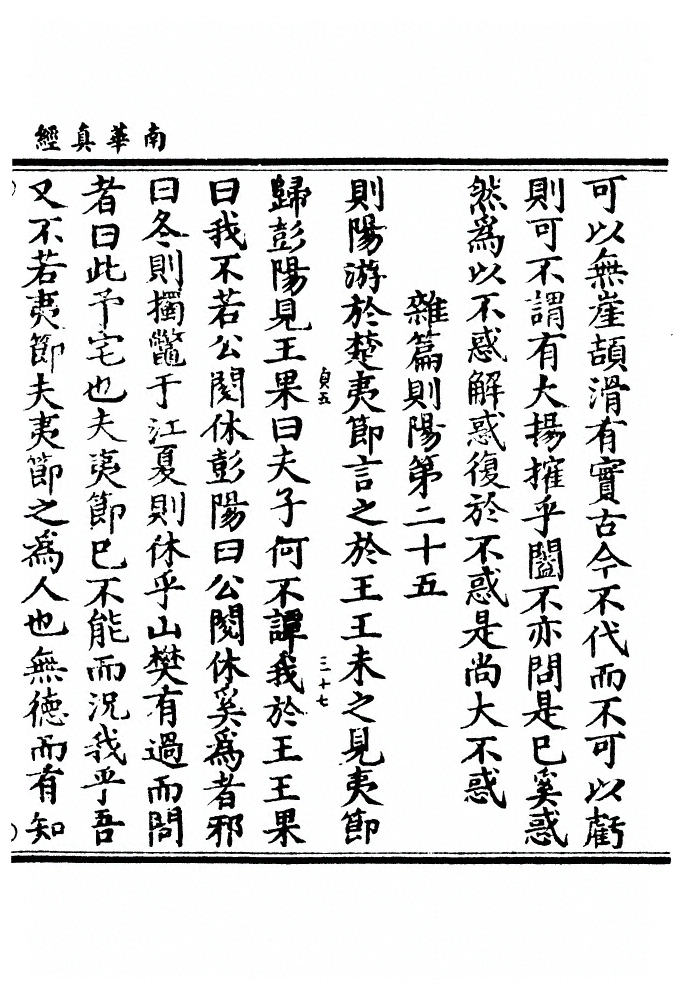 南華真經
可以無崖頡滑有實古今不代而不可以虧
則可不謂有大揚搉乎闔不亦問是已奚惑
然為以不惑解惑復於不惑是尚大不惑
雜篇則陽第二十五
則陽游於楚夷節言之於王王未之見夷節
貞五
三十七
歸彭陽見王果曰夫子何不譚我於王王果
曰我不若公閱休彭陽曰公閱休奚為者邪
曰冬則擉鼈于江夏則休乎山樊有過而問
者曰此予宅也夫夷節已不能而況我乎吾
又不若夷節夫夷節之為人也無德而有知